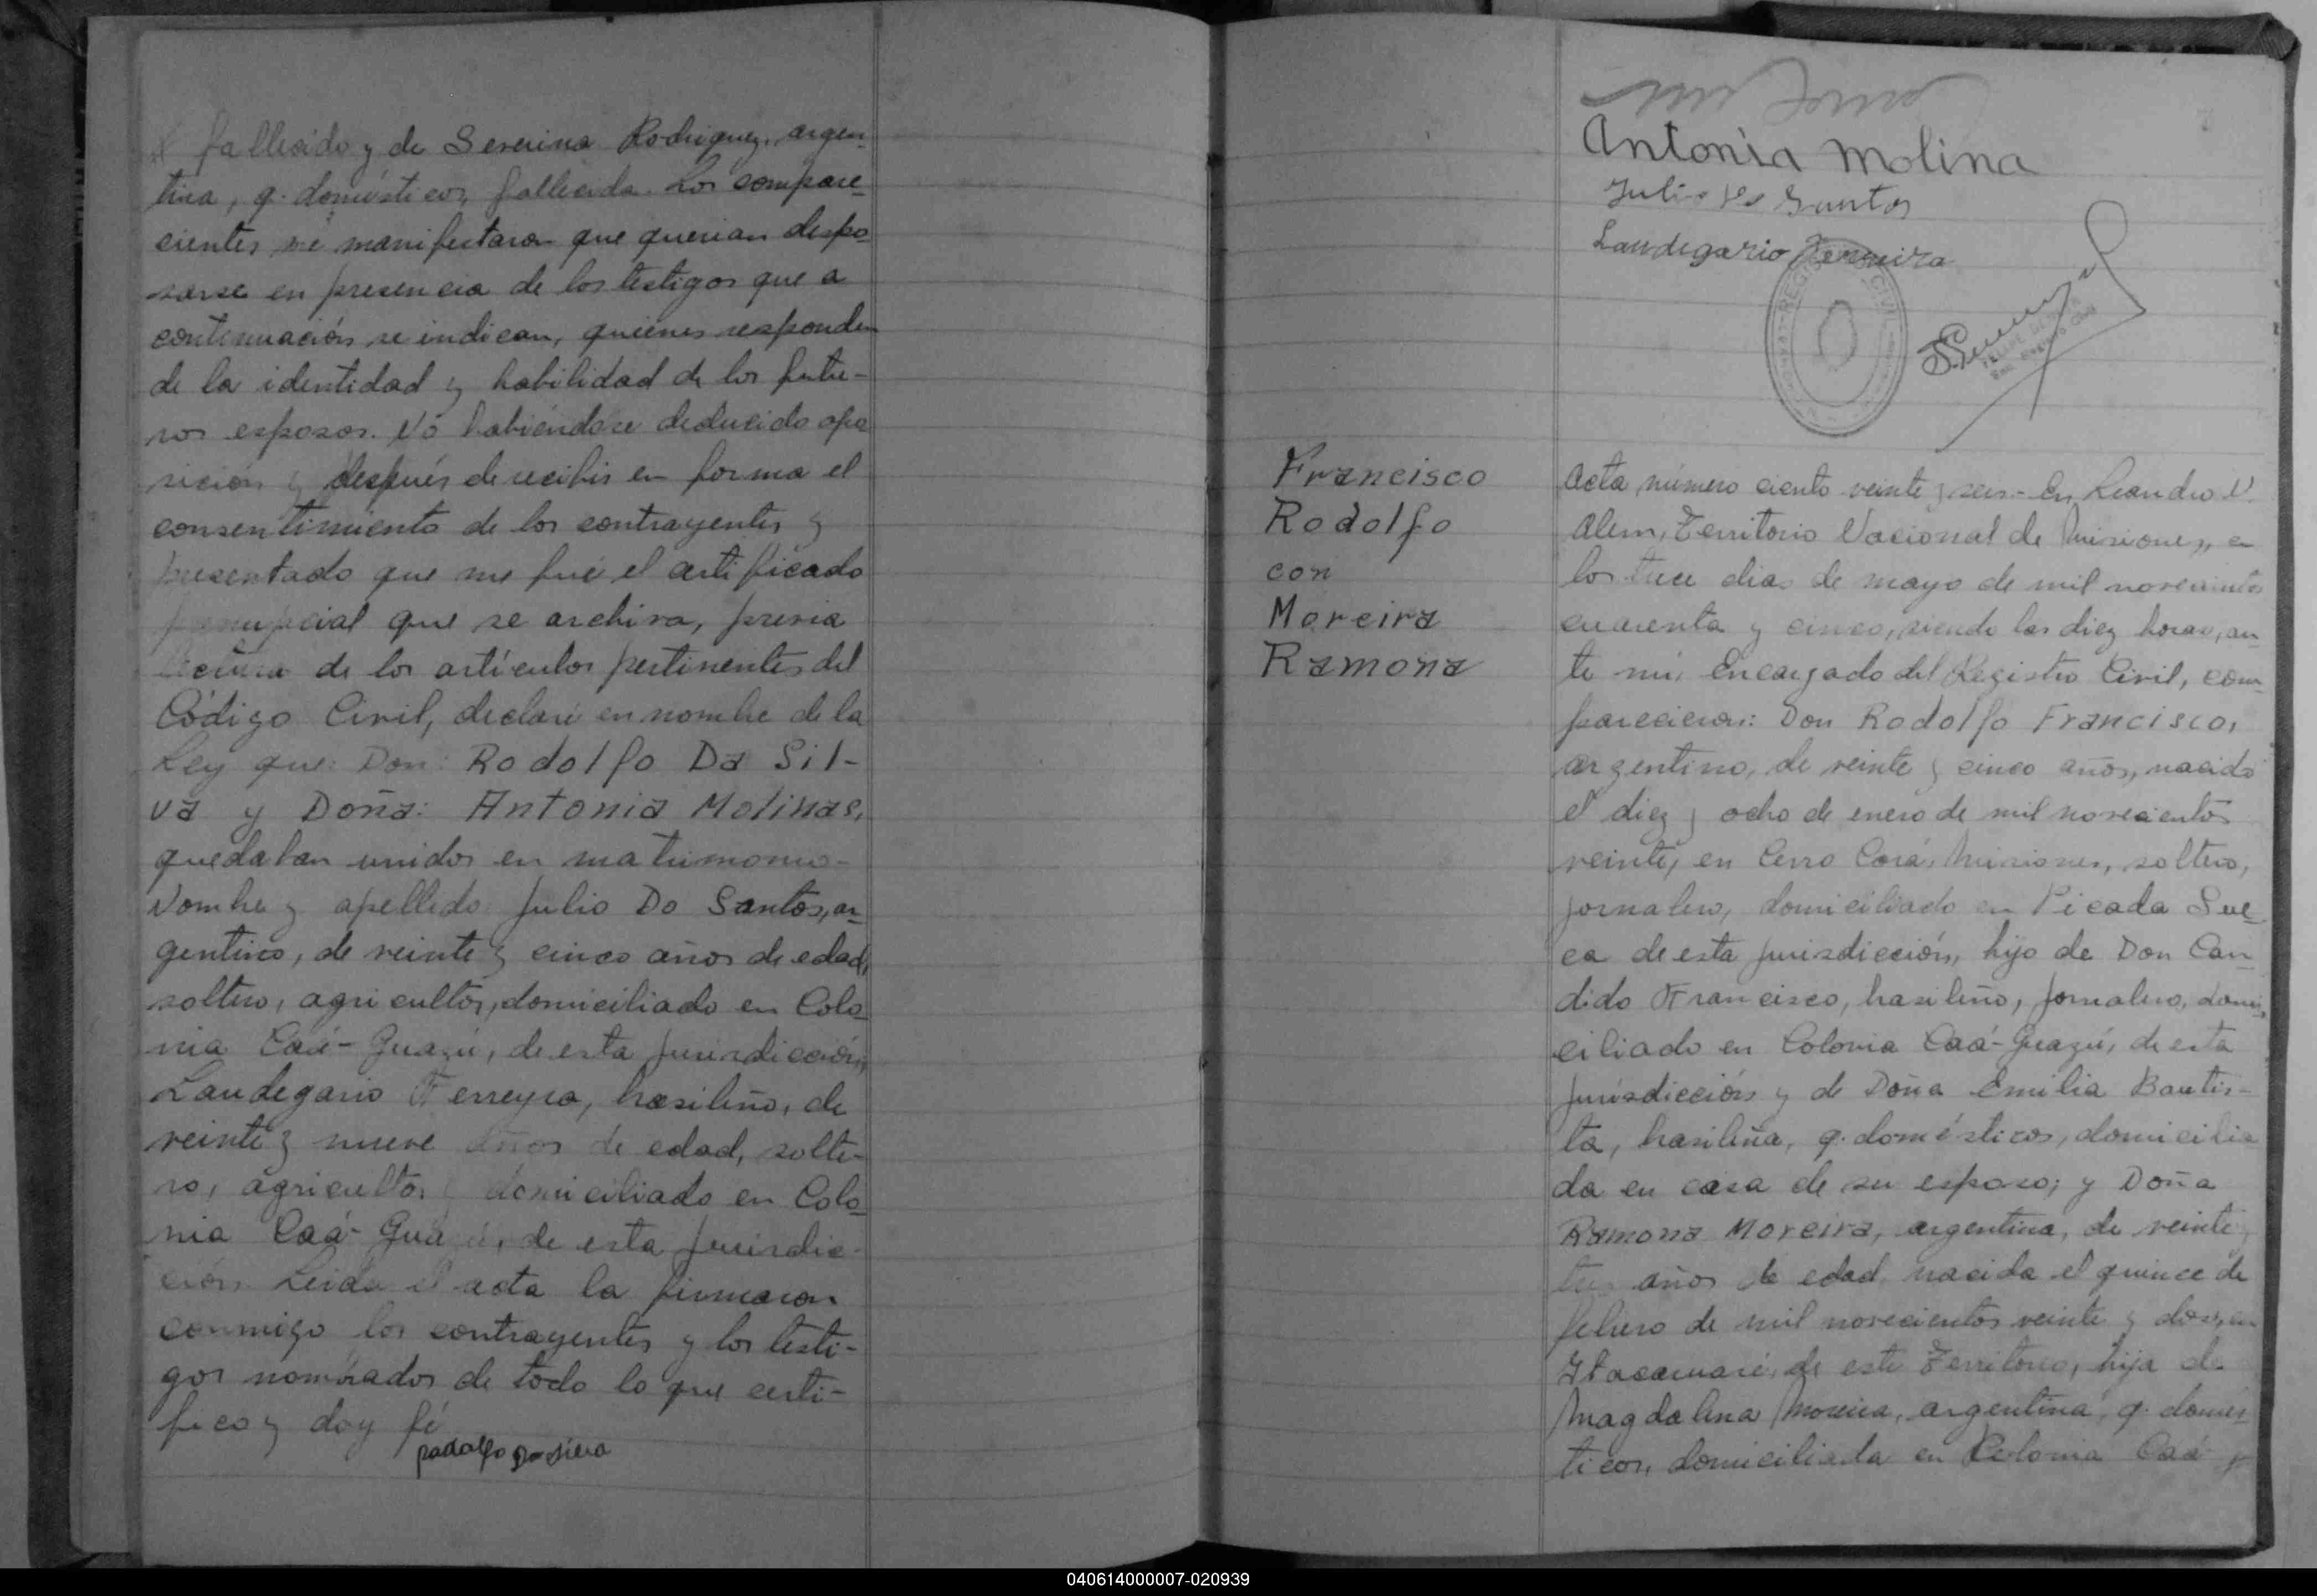 fallecido y de Severina Rodriguez, argen-
tina, q. domésticos, fallecida. Los compare-
cientes me manifestaron que querian despo-
sarse en presencia de los testigos que a
continuación se indican, quienes responden
de la identidad y habilidad de los futu-
ros esposos. No habiéndose deducido opo
sición y después de recibir en forma el
consentimiento de los contrayentes y
presentado que me fué el certificado
prenupcial que se archiva, previa
lectura de los artículos pertinentes del
Código Civil, declaré en nombre de la
Ley que: Don: Rodolfo Da Sil-
va y Doña: Antonia Molinas,
quedaban unidos en matrimonio-
Nombre y apellido Julio Do Santos, ar-
gentino, de veinte y cinco años de edad,
soltero, agricultor, domiciliado en Colo-
nia Caá-Guazú, de esta jurisdicción,
Laudegario Ferreyra, brasileño, de
veinte y nueve años de edad, solte-
ro, agricultor y domiciliado en Colo-
nia Caá-Guazú, de esta jurisdic-
ción. Leida el acta la firmaron
conmigo los contrayentes y los testi-
gos nombrados de todo lo que certi-
fico y doy fé
Rodolfo Da silva
Antonia Molina
Julio Do Santos
Laudegario Ferreira
REGISTRO CIVIL
Francisco
Rodolfo
con
Moreira
Ramona
Acta número ciento veinte y seis- En Leandro N.
Alem, Territorio Nacional de Misiones, a
los trece dias de mayo de mil novecientos
cuarenta y cinco, siendo las diez horas, an-
te mí, Encargado del Registro Civil, com-
parecieron: Don Rodolfo Francisco,
argentino, de veinte y cinco años, nacido
el diez y ocho de enero de mil novecientos
veinte, en Cerro Corá, Misiones, soltero,
jornalero, domiciliado en Picada Sue-
ca de esta jurisdicción, hijo de Don Can-
dido Francisco, brasileño, jornalero, domi-
ciliado en Colonia Caá-Guazú, de esta
jurisdicción y de Doña Emilia Bautis-
ta, brasileña, q. domésticos, domicilia
da en casa de su esposo; y Doña
Ramona Moreira, argentina, de veinte y
tres años de edad, nacida el quince de
febrero de mil novecientos veinte y dos, en
Itacaruaré, de este Territorio, hija de
Magdalena Moreira, argentina, q. domés
ticos, domiciliada en Colonia Caá-
040614000007-020939